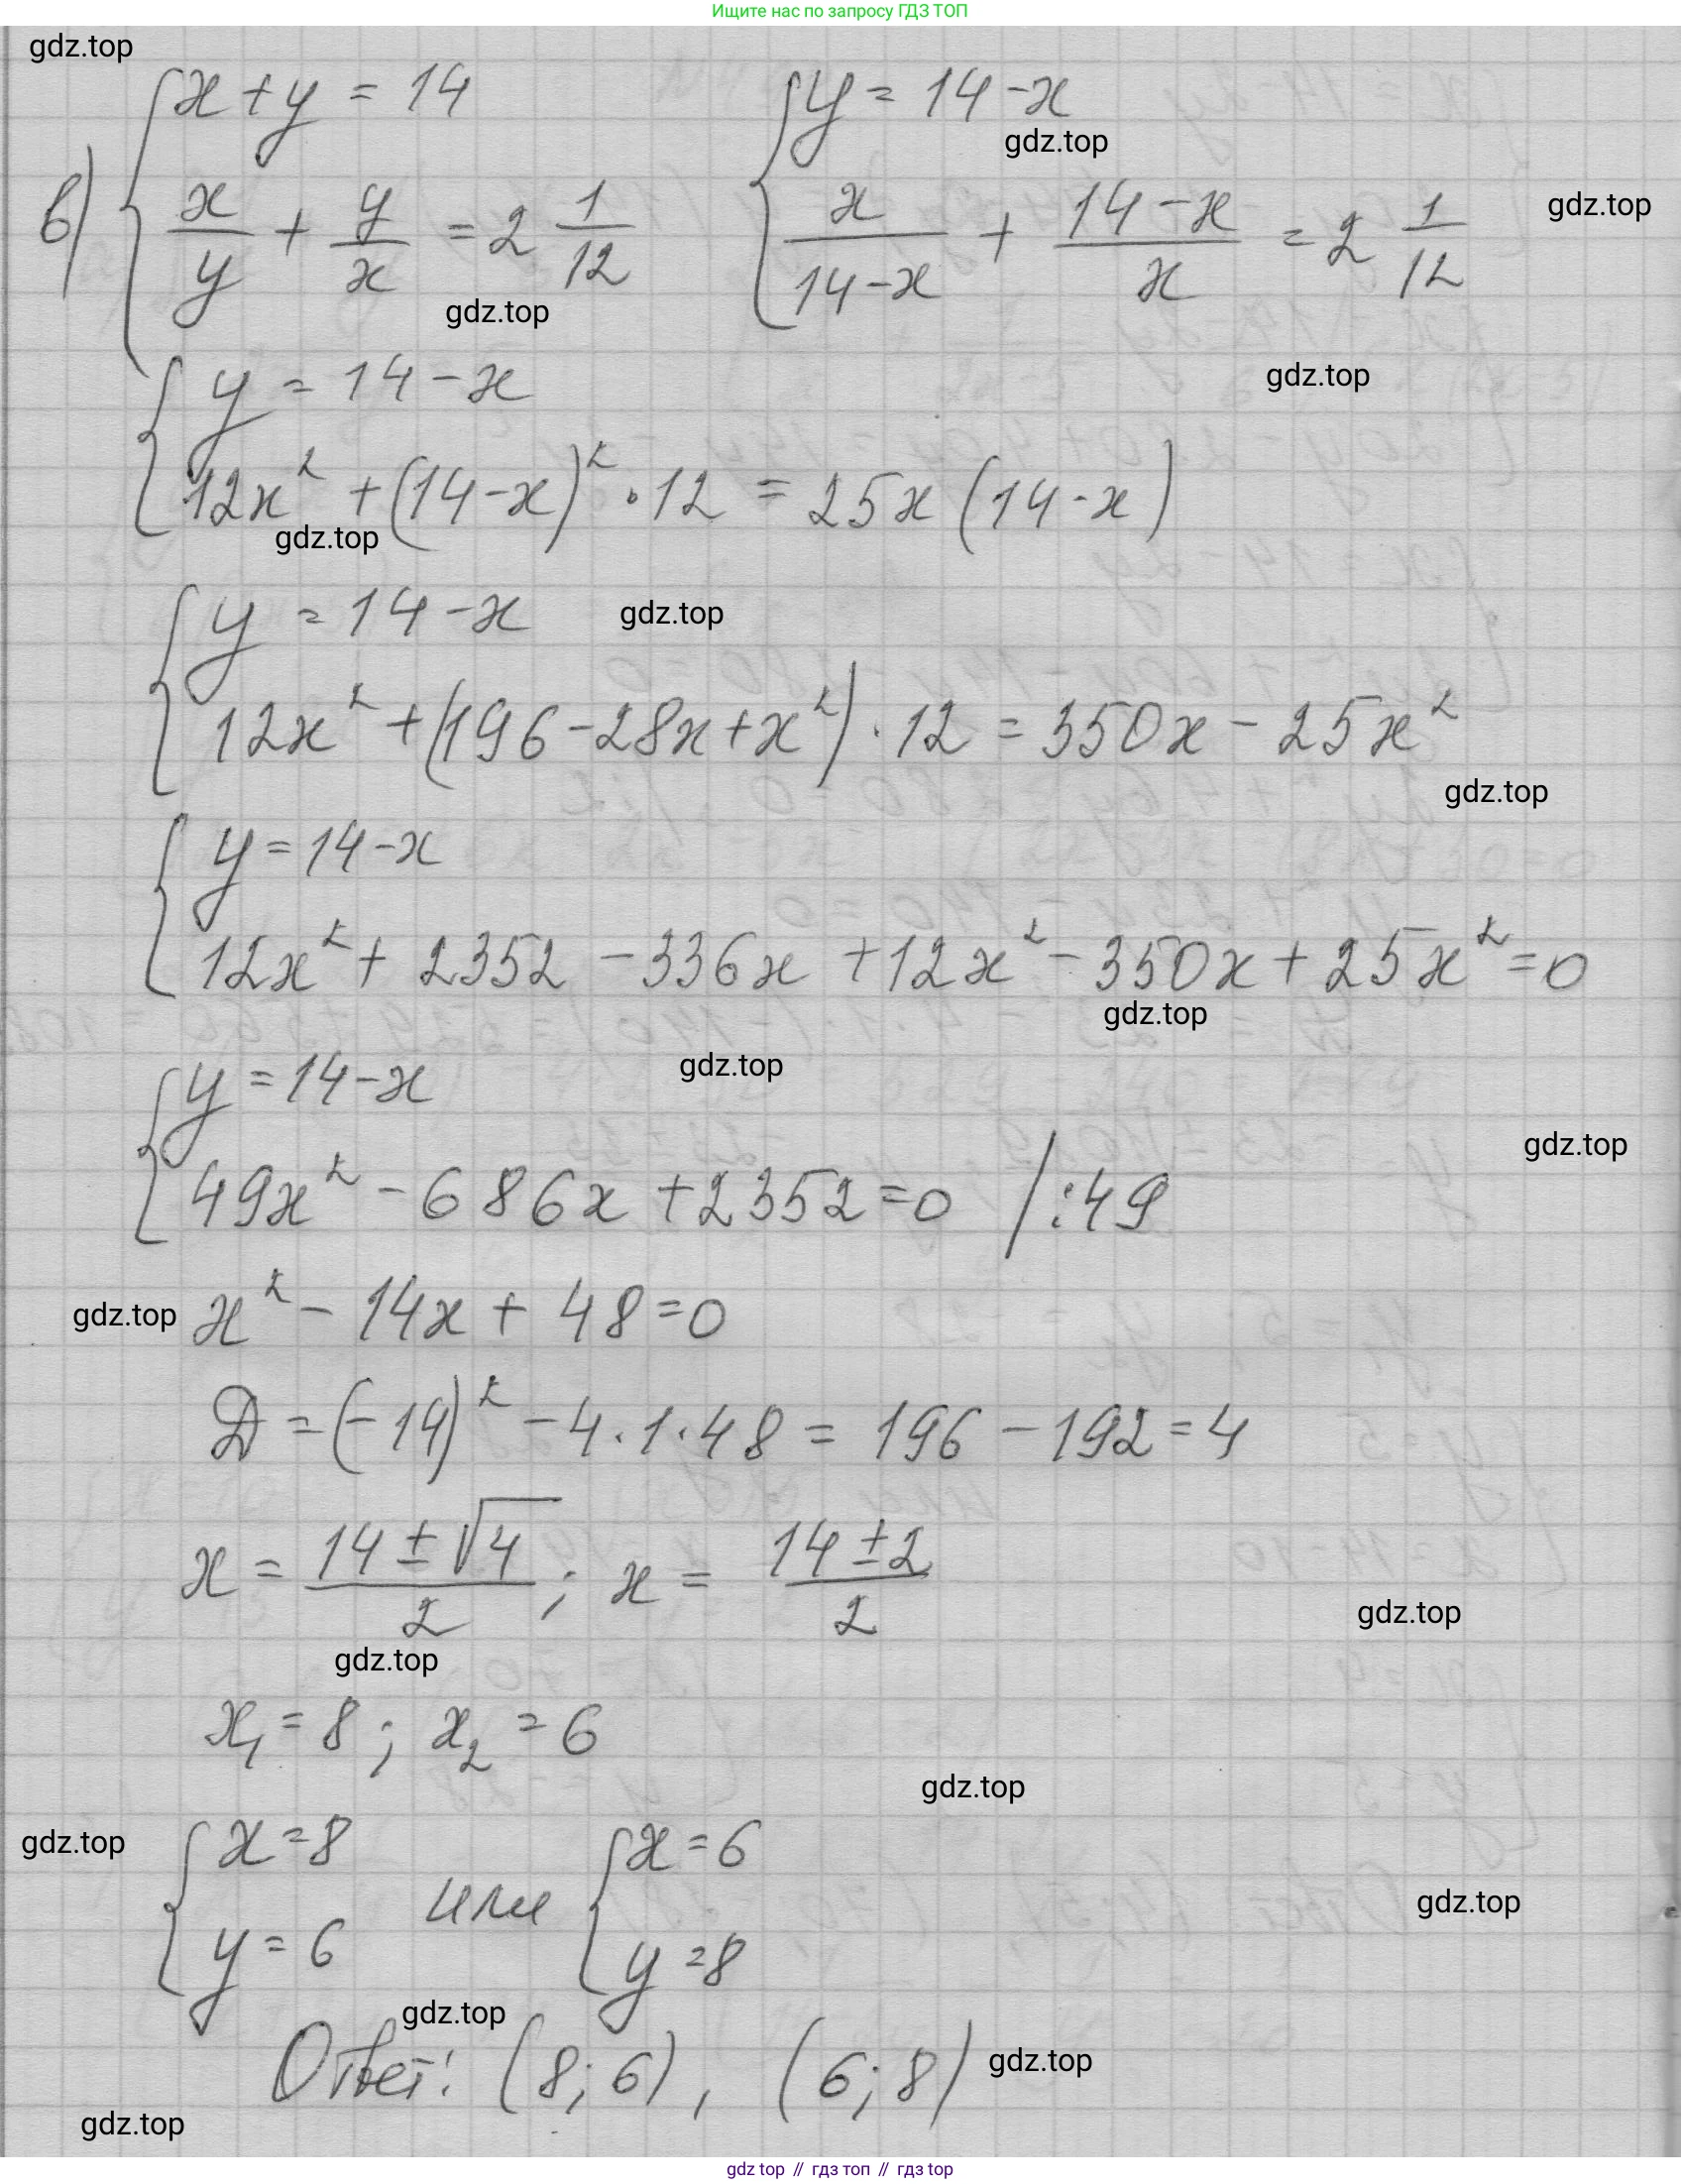 Ищите нас по запросу ГДЗ ТОП
gdz.top
в) { x + y = 14    { y = 14 - x
gdz.top
x/y + y/x = 2 1/12    x/(14-x) + (14-x)/x = 2 1/12
gdz.top
gdz.top
gdz.top
{ y = 14 - x
12x² + (14-x)² · 12 = 25x (14-x)
gdz.top
{ y = 14 - x
gdz.top
12x² + (196 - 28x + x²) · 12 = 350x - 25x²
gdz.top
{ y = 14 - x
12x² + 2352 - 336x + 12x² - 350x + 25x² = 0
gdz.top
gdz.top
{ y = 14 - x
gdz.top
49x² - 686x + 2352 = 0 | :49
gdz.top
x² - 14x + 48 = 0
D = (-14)² - 4 · 1 · 48 = 196 - 192 = 4
x = (14 ± √4)/2 ; x = (14 ± 2)/2
gdz.top
gdz.top
x₁ = 8 ; x₂ = 6
gdz.top
gdz.top
{ x = 8    { x = 6
или
gdz.top
y = 6    y = 8
gdz.top
Ответ: (8; 6), (6; 8)
gdz.top
gdz.top
gdz top // гдз топ // гдз top